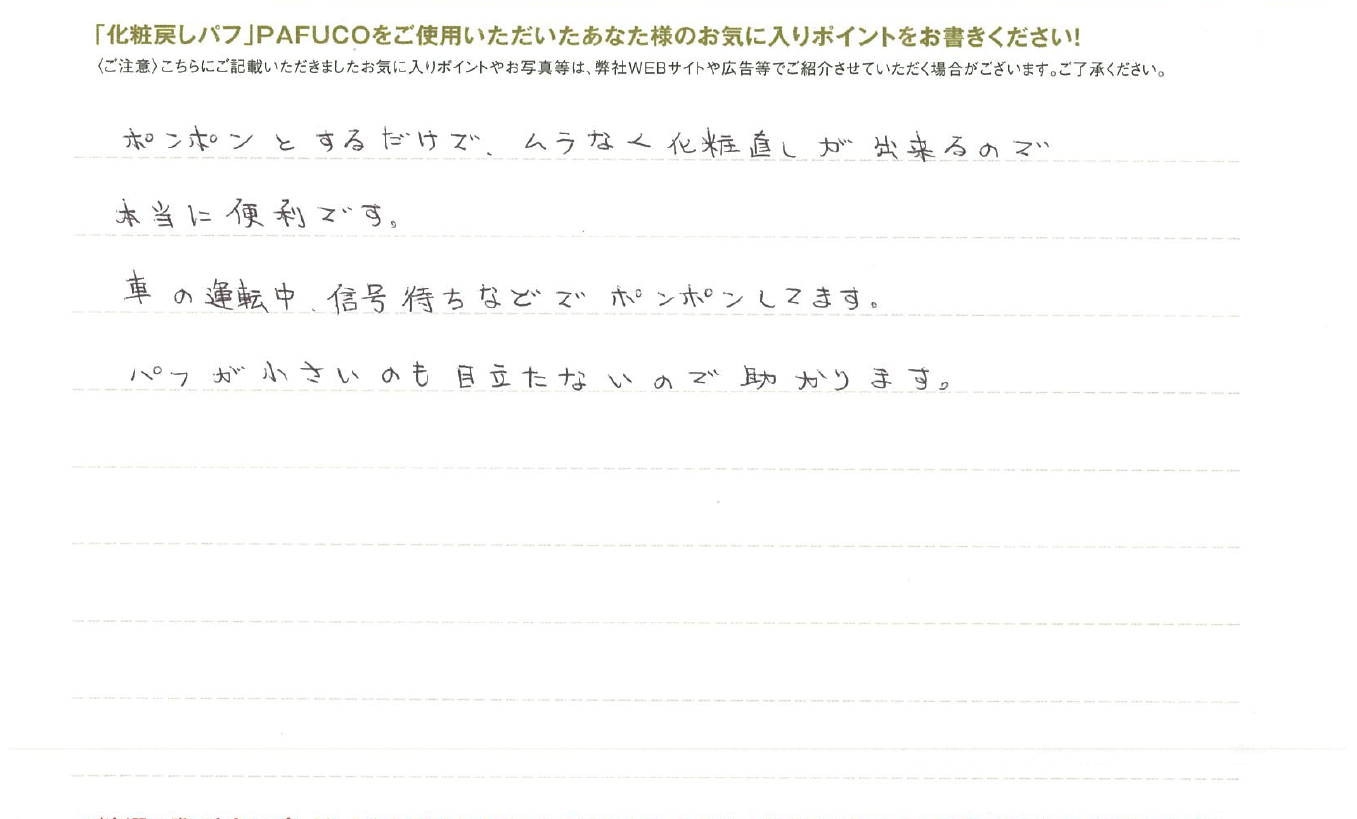 「化粧戻しパフ」PAFUCOをご使用いただいたあなた様のお気に入りポイントをお書きください!
〈ご注意〉こちらにご記載いただきましたお気に入りポイントやお写真等は、弊社WEBサイトや広告等でご紹介させていただく場合がございます。ご了承ください。
ポンポンとするだけで、ムラなく化粧直しが出来るので
本当に便利です。
車の運転中、信号待ちなどでポンポンしてます。
パフが小さいのも目立たないので助かります。